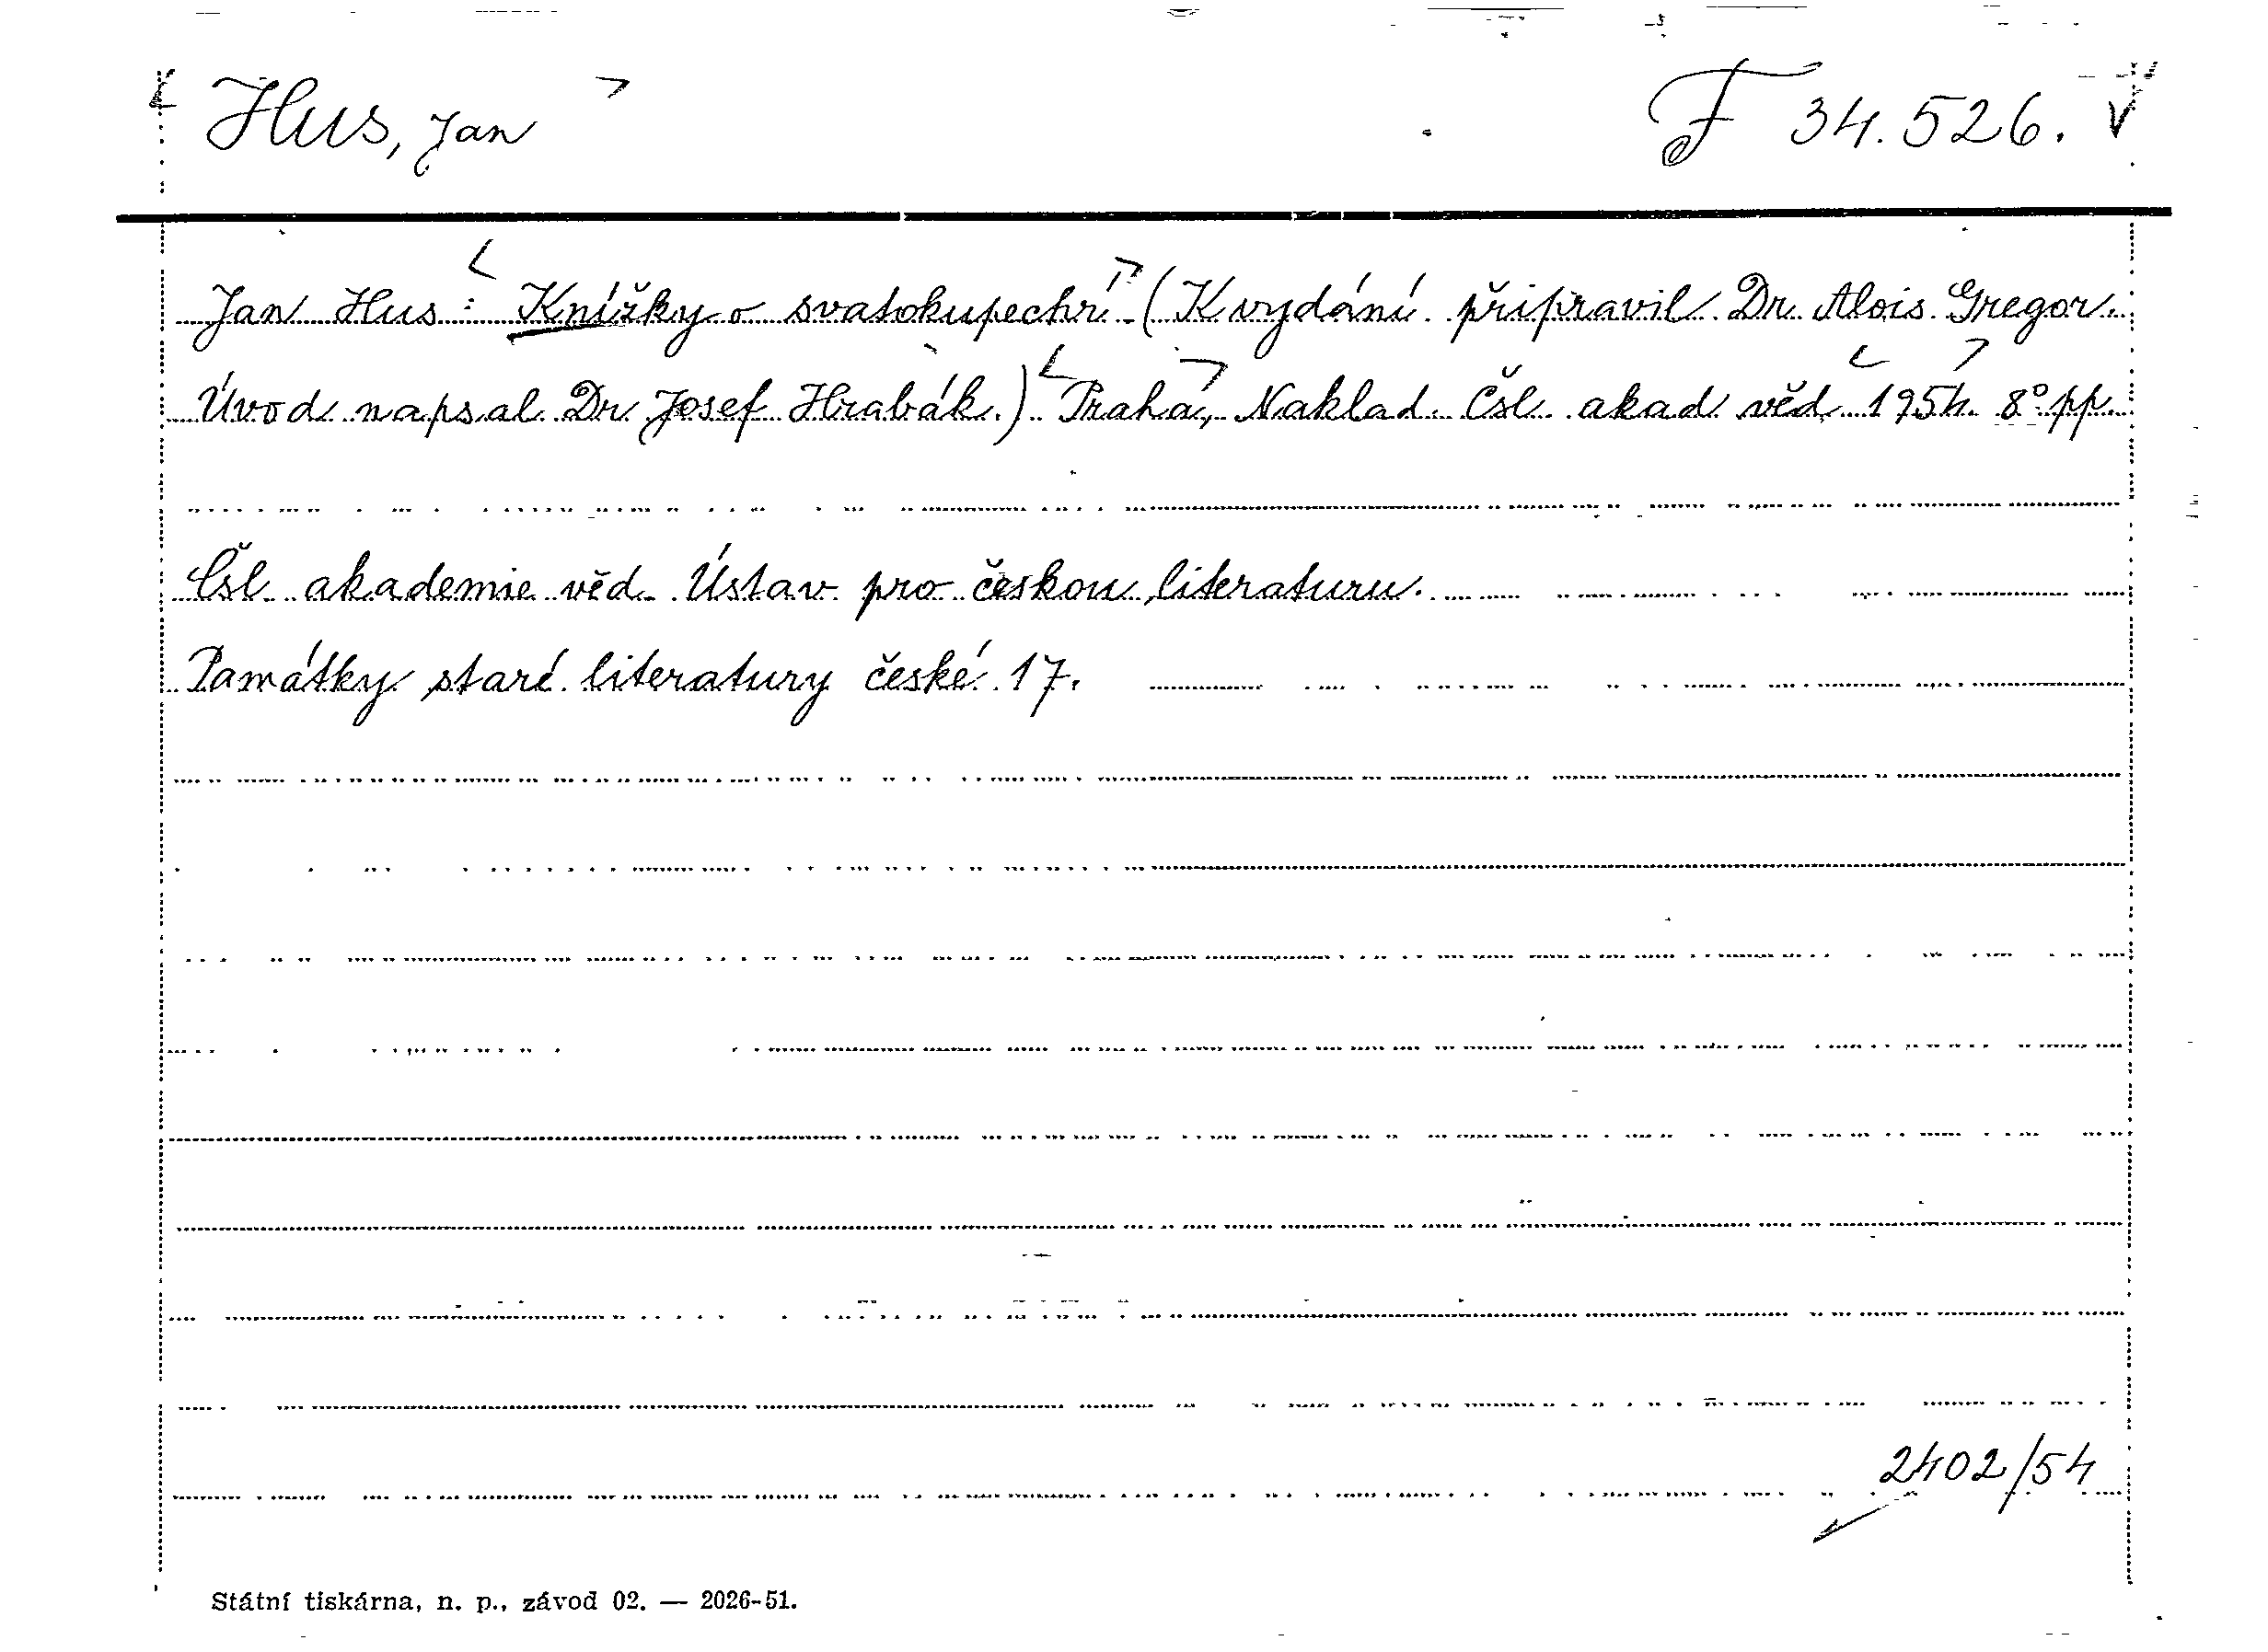 Hus, Jan F 34.526.
Jan Hus: Knížky o svatokupechří (K vydání připravil Dr. Alois Gregor.
Úvod napsal Dr. Josef Hrabák.) Praha, Naklad. Čsl. akad. věd 1954. 8° pp.
Čsl. akademie věd. Ústav pro českou literaturu.
Památky staré literatury české 17.
2402/54
Státní tiskárna, n. p., závod 02. — 2026-51.